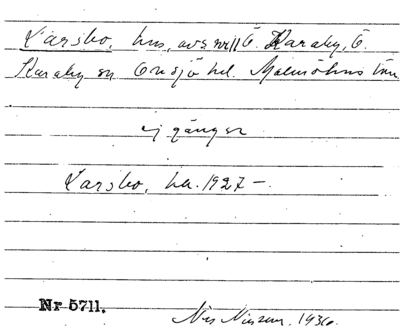 Larsbo, hus, avs nr 11 Ö. Karaby, Ö.
Karaby sn Onsjö hd. Malmöhus län
ej gånger
Larsbo, ha. 1927 –
Nr 5711.
Nils 1936.